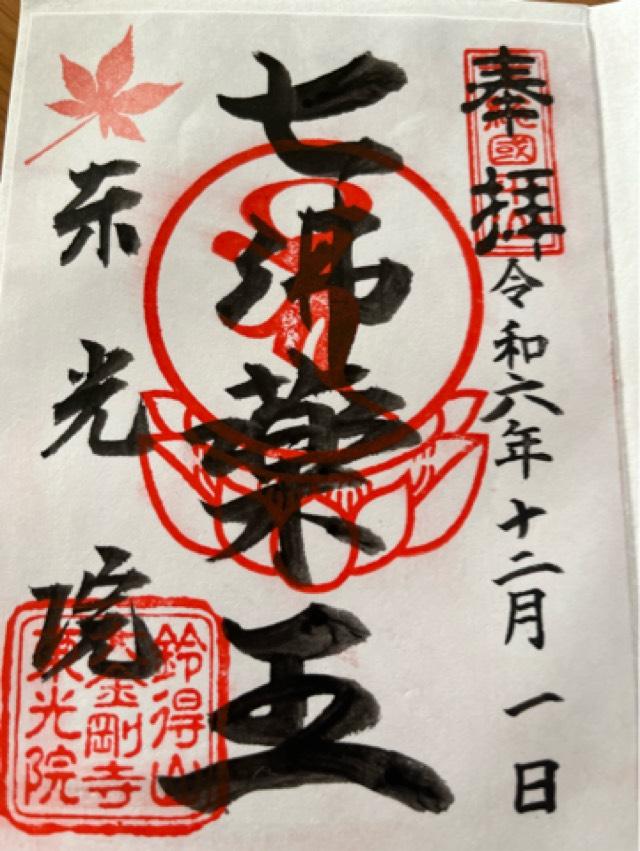 奉拝
令和六年十二月一日
七佛薬王
東光院
鈴得山
金剛寺
東光院